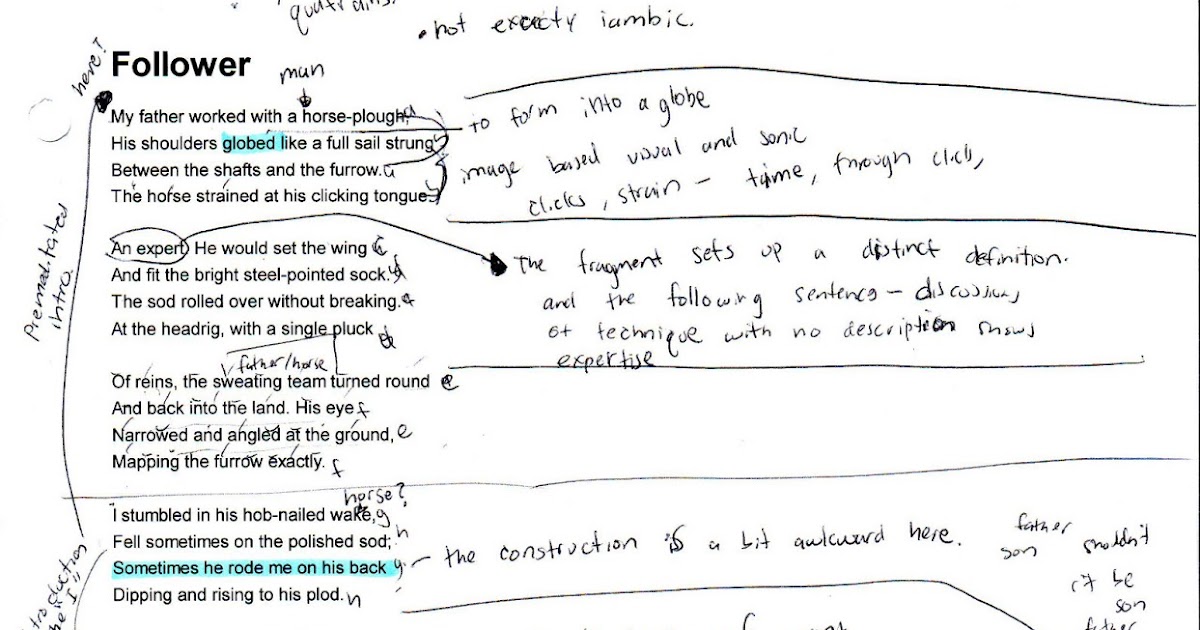 quatrains.
• not exactly iambic.
here!
Follower
man
My father worked with a horse-plough, a
His shoulders globed like a full sail strung b
Between the shafts and the furrow. a
The horse strained at his clicking tongue. b
to form into a globe
image based visual and sonic
clicks, strain - time, through click,
Premeditated
intro.
An expert. He would set the wing c
And fit the bright steel-pointed sock. d
The sod rolled over without breaking. c
At the headrig, with a single pluck d
The fragment sets up a distinct definition.
and the following sentence - discussions
of technique with no description shows
expertise
father/horse
Of reins, the sweating team turned round e
And back into the land. His eye f
Narrowed and angled at the ground, e
Mapping the furrow exactly. f
horse?
I stumbled in his hob-nailed wake, g
Fell sometimes on the polished sod; h
Sometimes he rode me on his back g
Dipping and rising to his plod. h
the construction is a bit awkward here.
father
son
shouldn't
it be
son
father